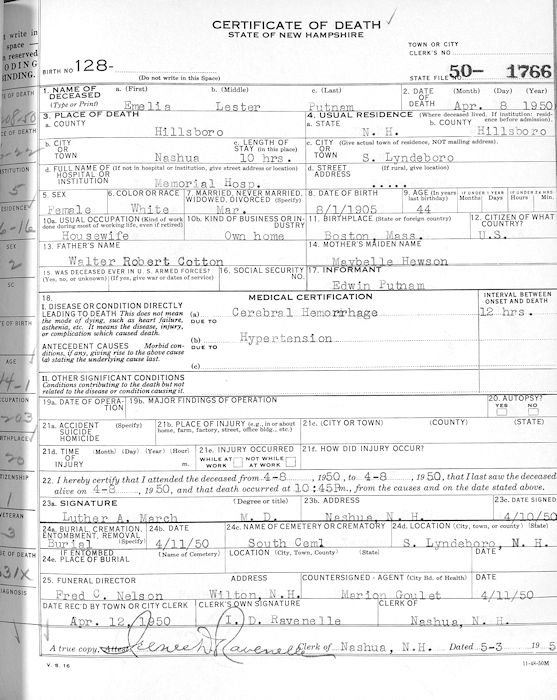 CERTIFICATE OF DEATH
STATE OF NEW HAMPSHIRE
t write in
space —
a reserved
ODING
INDING.
TOWN OR CITY
CLERK'S NO.
BIRTH NO. 128-
(Do not write in this Space)
STATE FILE 50- 1766
1. NAME OF DECEASED (Type or Print) a. (First) b. (Middle) c. (Last) 2. DATE OF DEATH (Month) (Day) (Year)
Emelia Lester Putnam Apr. 8 1950
3. PLACE OF DEATH 4. USUAL RESIDENCE (Where deceased lived. If institution: residence before admission).
a. COUNTY a. STATE b. COUNTY
Hillsboro N. H. Hillsboro
b. CITY OR TOWN c. LENGTH OF STAY (in this place) c. CITY (Give actual town of residence, NOT mailing address). OR TOWN
Nashua 10 hrs. S. Lyndeboro
d. FULL NAME OF (If not in hospital or institution, give street address or location) HOSPITAL OR INSTITUTION d. STREET ADDRESS (If rural, give location)
Memorial Hosp.
5. SEX 6. COLOR OR RACE 7. MARRIED, NEVER MARRIED, WIDOWED, DIVORCED (Specify) 8. DATE OF BIRTH 9. AGE (In years last birthday) IF UNDER 1 YEAR Months Days IF UNDER 24 HRS Hours Min.
Female White Mar. 8/1/1905 44
10a. USUAL OCCUPATION (Kind of work done during most of working life, even if retired) 10b. KIND OF BUSINESS OR INDUSTRY 11. BIRTHPLACE (State or foreign country) 12. CITIZEN OF WHAT COUNTRY?
Housewife Own home Boston, Mass. U.S.
13. FATHER'S NAME 14. MOTHER'S MAIDEN NAME
Walter Robert Cotton Maybelle Hewson
15. WAS DECEASED EVER IN U. S. ARMED FORCES? (Yes, no, or unknown) (If yes, give war or dates of service) 16. SOCIAL SECURITY NO. 17. INFORMANT
Edwin Putnam
18. MEDICAL CERTIFICATION INTERVAL BETWEEN ONSET AND DEATH
I. DISEASE OR CONDITION DIRECTLY
LEADING TO DEATH This does not mean
the mode of dying, such as heart failure,
asthenia, etc. It means the disease, injury,
or complication which caused death.
(a) Cerebral Hemorrhage 12 hrs.
DUE TO
ANTECEDENT CAUSES Morbid conditions, if any, giving rise to the above cause (a) stating the underlying cause last.
(b) Hypertension
DUE TO
(c)
II. OTHER SIGNIFICANT CONDITIONS
Conditions contributing to the death but not
related to the disease or condition causing it.
19a. DATE OF OPERATION 19b. MAJOR FINDINGS OF OPERATION 20. AUTOPSY? YES NO
21a. ACCIDENT SUICIDE HOMICIDE (Specify) 21b. PLACE OF INJURY (e.g., in or about home, farm, factory, street, office bldg., etc.) 21c. (CITY OR TOWN) (COUNTY) (STATE)
21d. TIME OF INJURY (Month) (Day) (Year) (Hour) m. 21e. INJURY OCCURRED WHILE AT WORK NOT WHILE AT WORK 21f. HOW DID INJURY OCCUR?
22. I hereby certify that I attended the deceased from 4-8, 1950, to 4-8, 1950, that I last saw the deceased
alive on 4-8, 1950, and that death occurred at 10:45Pm., from the causes and on the date stated above.
23a. SIGNATURE (Degree or title) 23b. ADDRESS 23c. DATE SIGNED
Luther A. March M. D. Nashua, N. H. 4/10/50
24a. BURIAL, CREMATION, ENTOMBMENT, REMOVAL (Specify) 24b. DATE 24c. NAME OF CEMETERY OR CREMATORY 24d. LOCATION (City, town, or county) (State)
Burial 4/11/50 South Ceml S. Lyndeboro, N. H.
IF ENTOMBED 24e. PLACE OF BURIAL (Name of Cemetery) LOCATION (City, Town, County) (State) DATE
25. FUNERAL DIRECTOR ADDRESS COUNTERSIGNED - AGENT (City Bd. of Health) DATE
Fred C. Nelson Wilton, N.H. Marion Goulet 4/11/50
DATE REC'D BY TOWN OR CITY CLERK CLERK'S OWN SIGNATURE CLERK OF
Apr. 12, 1950 I. D. Ravenelle Nashua, N. H.
A true copy, Attest: Clerk of Nashua, N.H. Dated 5-3 195
V. S. 16 11-48-50M